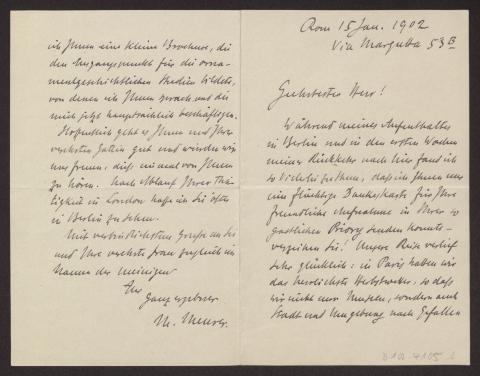 Rom 15 Jan. 1902
Via Margutta 53B
Geehrtester Herr!
Während meines Aufenthaltes
in Berlin und in den ersten Wochen
meiner Rückkehr nach hier fand ich
so viel zu thun, dass ich Ihnen nur
eine flüchtige Dankeskarte für Ihre
freundliche Aufnahme in Ihrer so
gastlichen Priory senden konnte –
verzeihen Sie! Unsere Reise verlief
sehr glücklich; in Paris hatten wir
das herrlichste Herbstwetter, so dass
wir nicht nur Museen, sondern auch
Stadt und Umgebung nach Gefallen
ich Ihnen eine kleine Brochure, die
den Ausgangspunkt für die orna-
mentgeschichtlichen Studien bildete,
von denen ich Ihnen sprach und die
mich jetzt hauptsächlich beschäftigen.
Hoffentlich geht es Ihnen und Ihrer
verehrten Gattin gut und würden wir
uns freuen, einmal von Ihnen
zu hören. Nach Ablauf Ihrer Thä-
tigkeit in London hoffe ich Sie öfter
in Berlin zu sehen.
Mit verbindlichsten Grüssen an Sie
und Ihre verehrte Frau zugleich im
Namen der Meinigen
Ihr
Ganz ergebener
M. Meurer.